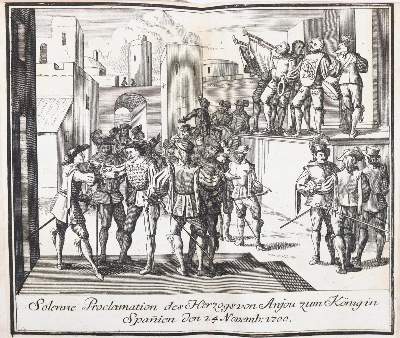 Solenne Proclamation des Herzogs von Anjou zum König in
Spanien den 24 Novemb: 1700.